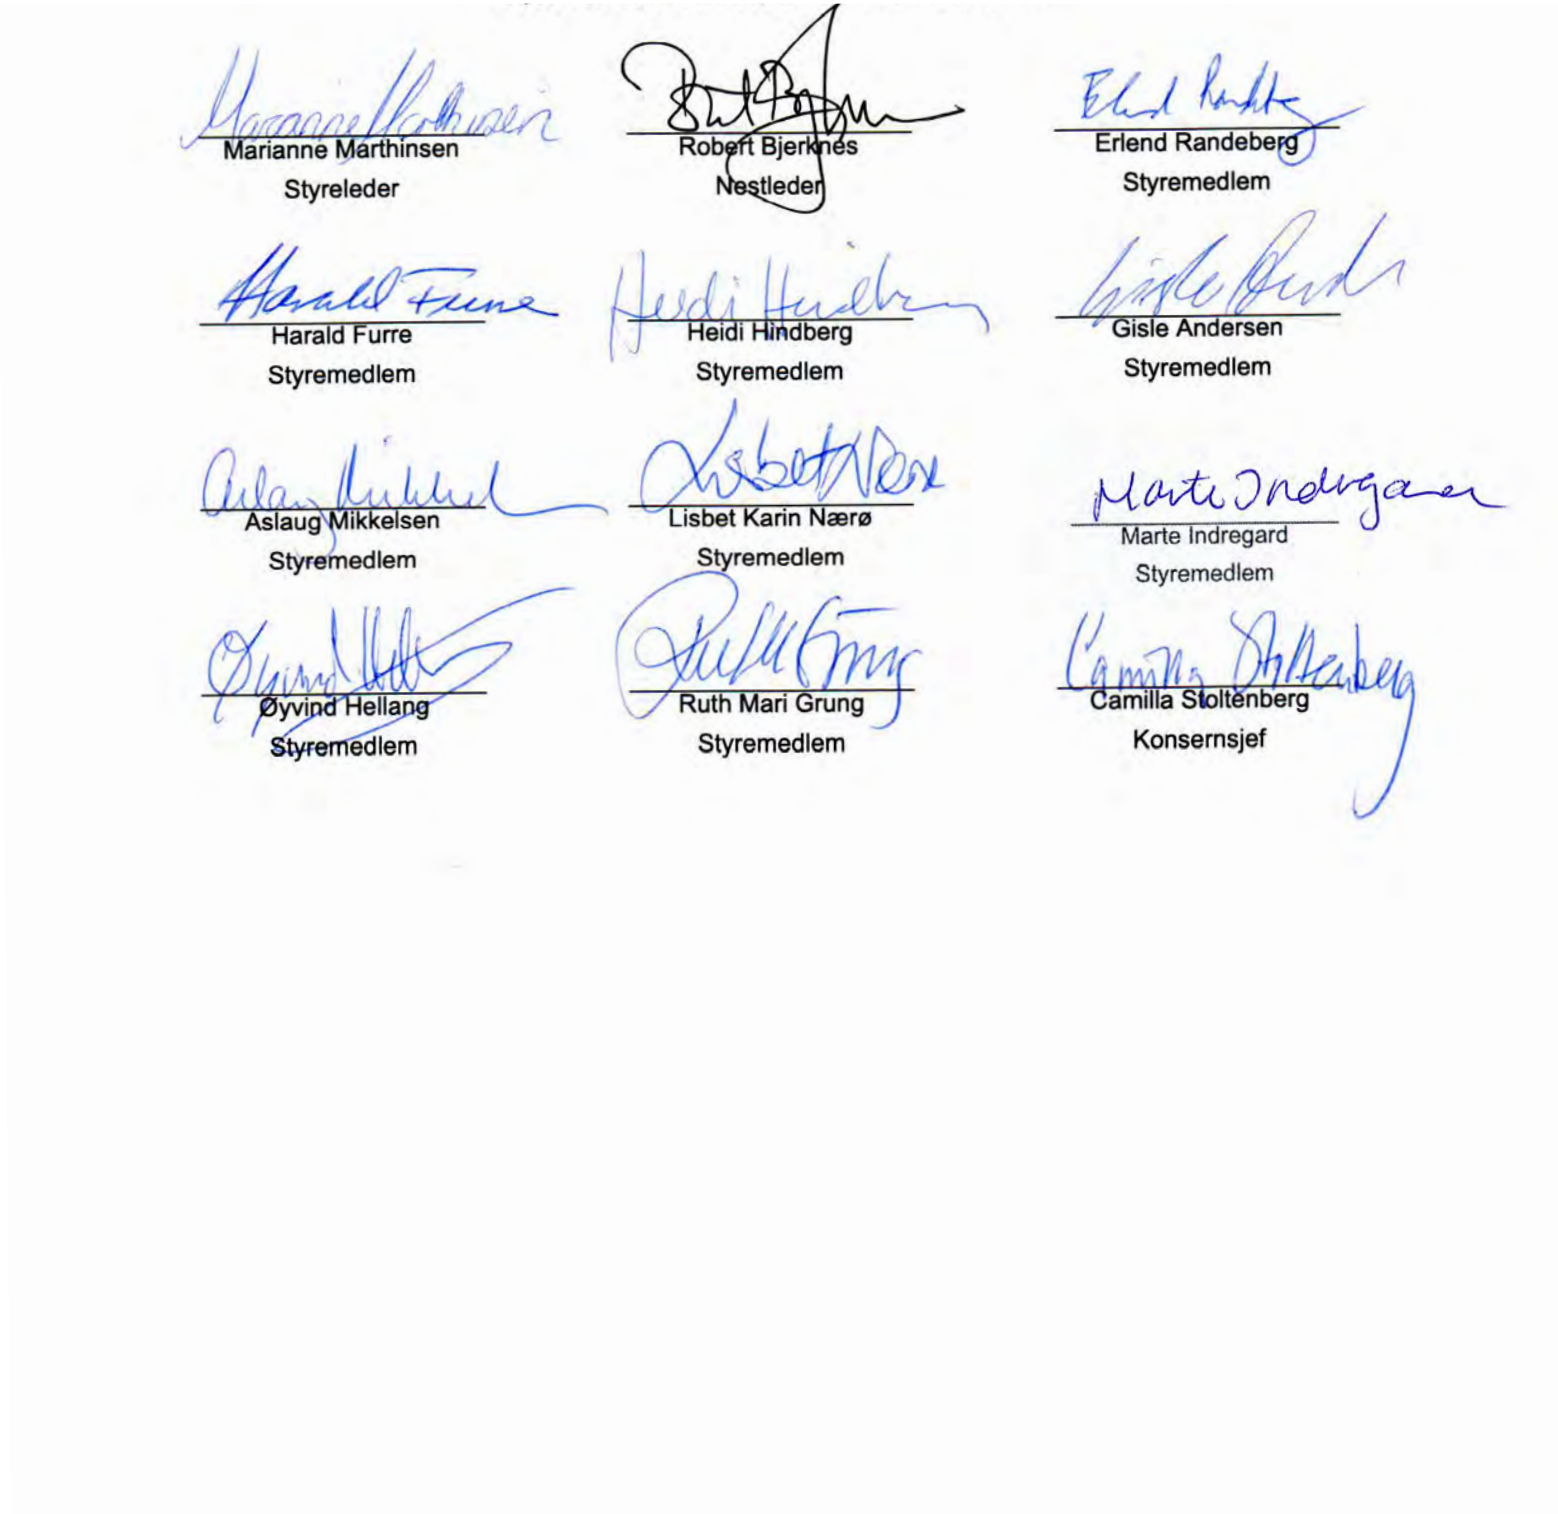 Marianne Marthinsen
Marianne Marthinsen
Styreleder
Robert Bjerknes
Nestleder
Erlend Randeberg
Erlend Randeberg
Styremedlem
Harald Furre
Harald Furre
Styremedlem
Heidi Hindberg
Heidi Hindberg
Styremedlem
Gisle
Gisle Andersen
Styremedlem
Aslaug Mikkel
Aslaug Mikkelsen
Styremedlem
Lisbet Nærø
Lisbet Karin Nærø
Styremedlem
Marte Indregard
Marte Indregard
Styremedlem
Øyvind
Øyvind Hellang
Styremedlem
Ruth M Grung
Ruth Mari Grung
Styremedlem
Camilla Stoltenberg
Camilla Stoltenberg
Konsernsjef